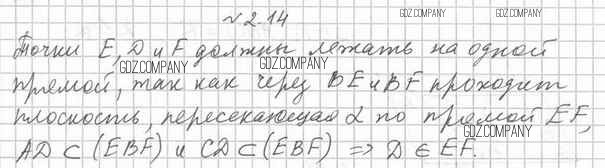 GDZ.COMPANY
№ 2.14
GDZ.COMPANY
Точки E, D и F должны лежать на одной
GDZ.COMPANY
прямой, так как через BE и BF проходит
плоскость, пересекающая α по прямой EF,
GDZ.COMPANY
AD ⊂ (EBF) и CD ⊂ (EBF) ⇒ D ∈ EF.
GDZ.COMPANY